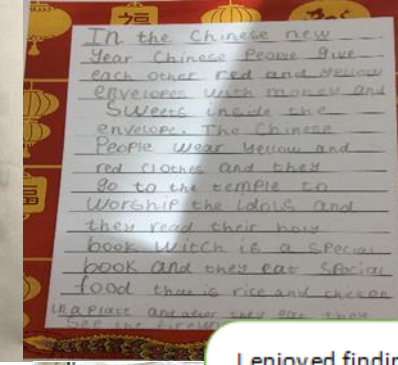 In the Chinese new
Year Chinese People give
each other red and yellow
envelopes with money and
Sweets inside the
envelope. The Chinese
People wear yellow and
red clothes and they
go to the temple to
Worship the Idols and
they read their holy
book witch is a special
book and they eat special
food that is rice and chicken
in a plate and after they eat they
See the
I enjoyed findin
福
福